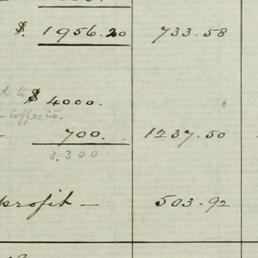 $. 1956.20 733.58
d to $ 4000.
700. 1237.50
3,300
profit — 503.92